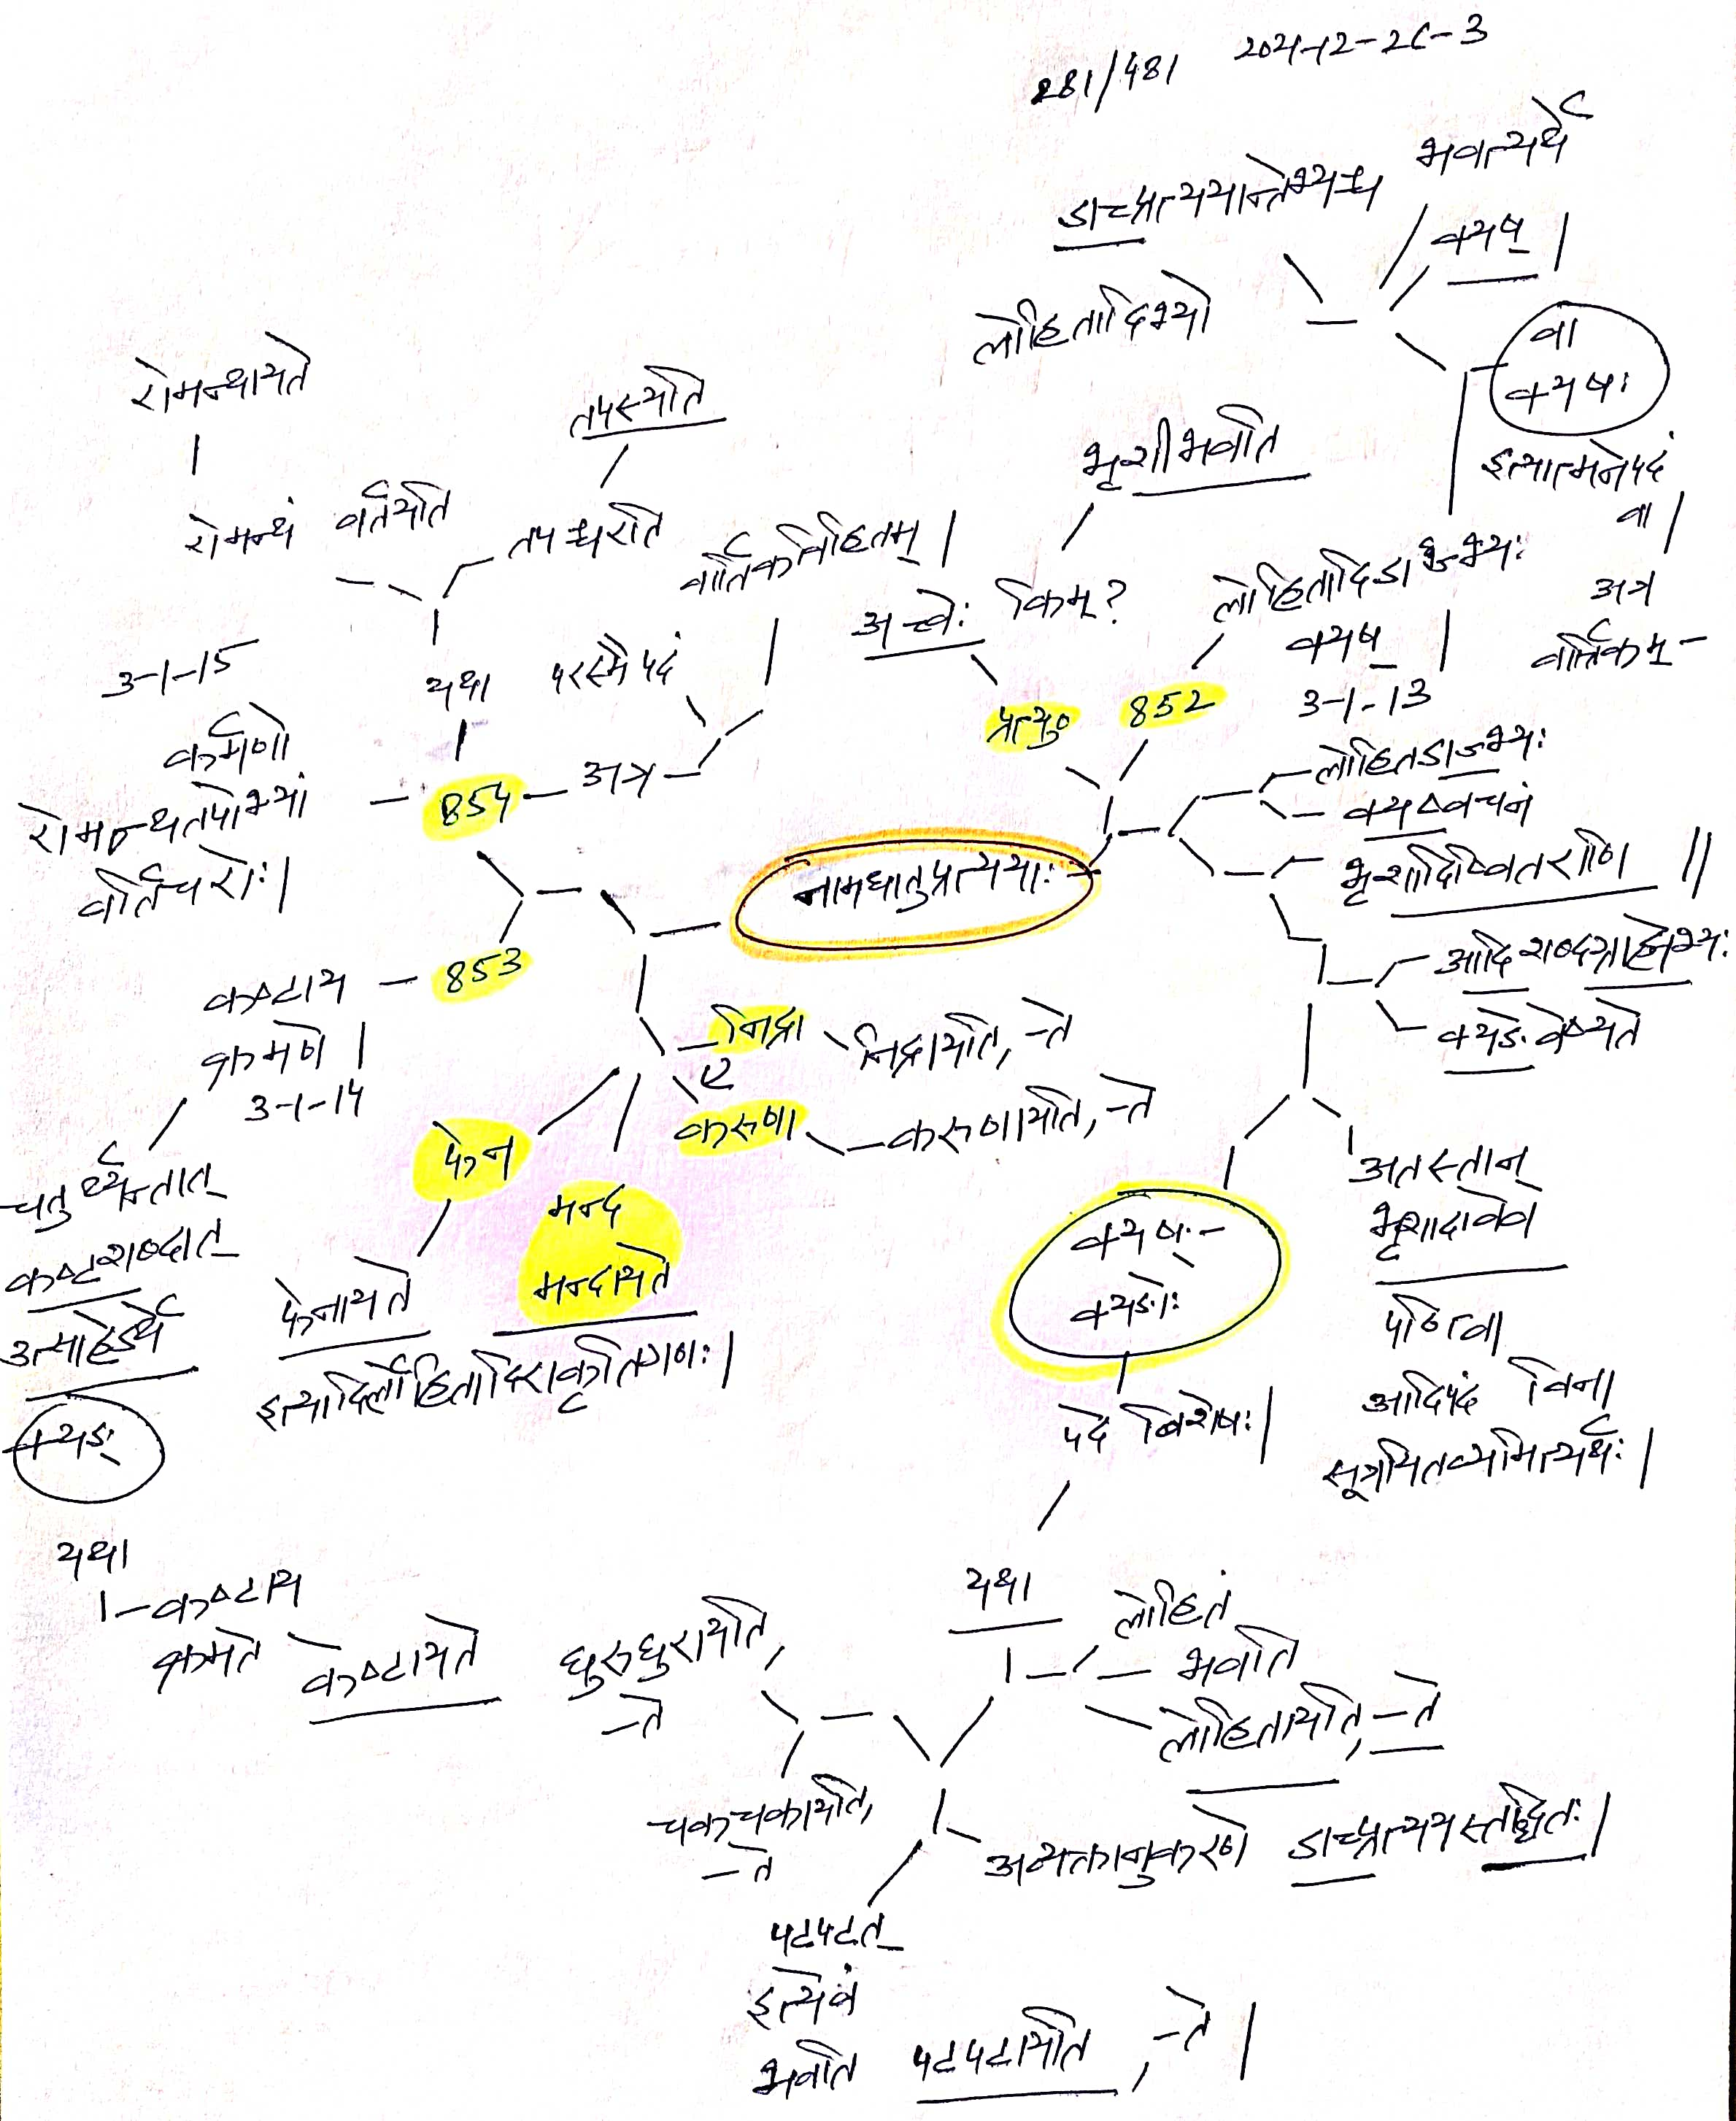 281/481
डाच्प्रत्ययान्तेभ्यश्च
भवत्यर्थे
क्यष् |
लोहितादिभ्यो
वा
क्यषः
इत्यात्मनेपदं
वा |
अत्र
वार्त्तिकम् -
भृशीभवति
अच्वेः किम्?
प्रत्यु०
852
लोहितादिडाज्भ्यः
क्यष् |
3-1-13
लोहितडाज्भ्यः
क्यष्वचनं
भृशादिष्वितराणि ||
आदिशब्दग्राह्येभ्यः
क्यङेवेष्यते
अतस्तान्
भृशादावेव
पठित्वा
आदिपदं विना
सूत्रयितव्यमित्यर्थः |
क्यष्-
क्यङोः
पदे विशेषः |
यथा
लोहितं
भवति
लोहितायति, -ते
अव्यक्तानुकरणे डाच्प्रत्ययस्तद्धितः |
पटपटत्
इत्येवं
भवति पटपटायति, -ते |
चकचकायति,
-ते
घुरुघुरायति,
-ते
नामधातुप्रत्ययाः
निद्रा
निद्रायति, -ते
करुणा
करुणायति, -ते
मन्द
मन्दायते
फेन
फेनायते
इत्यादिर्लोहितादिराकृतिगणः |
853
कष्टाय
क्रमणे |
3-1-14
चतुर्थ्यन्तात्
कष्टशब्दात्
उत्साहेऽर्थे
क्यङ्
यथा
कष्टाय
क्रमते
कष्टायते
854
3-1-15
कर्मणो
रोमन्थतपोभ्यां
वर्तिचरोः |
यथा
रोमन्थं वर्तयति
रोमन्थायते
तपश्चरति
तपस्यति
अत्र
परस्मैपदं
वार्तिकविहितम् |